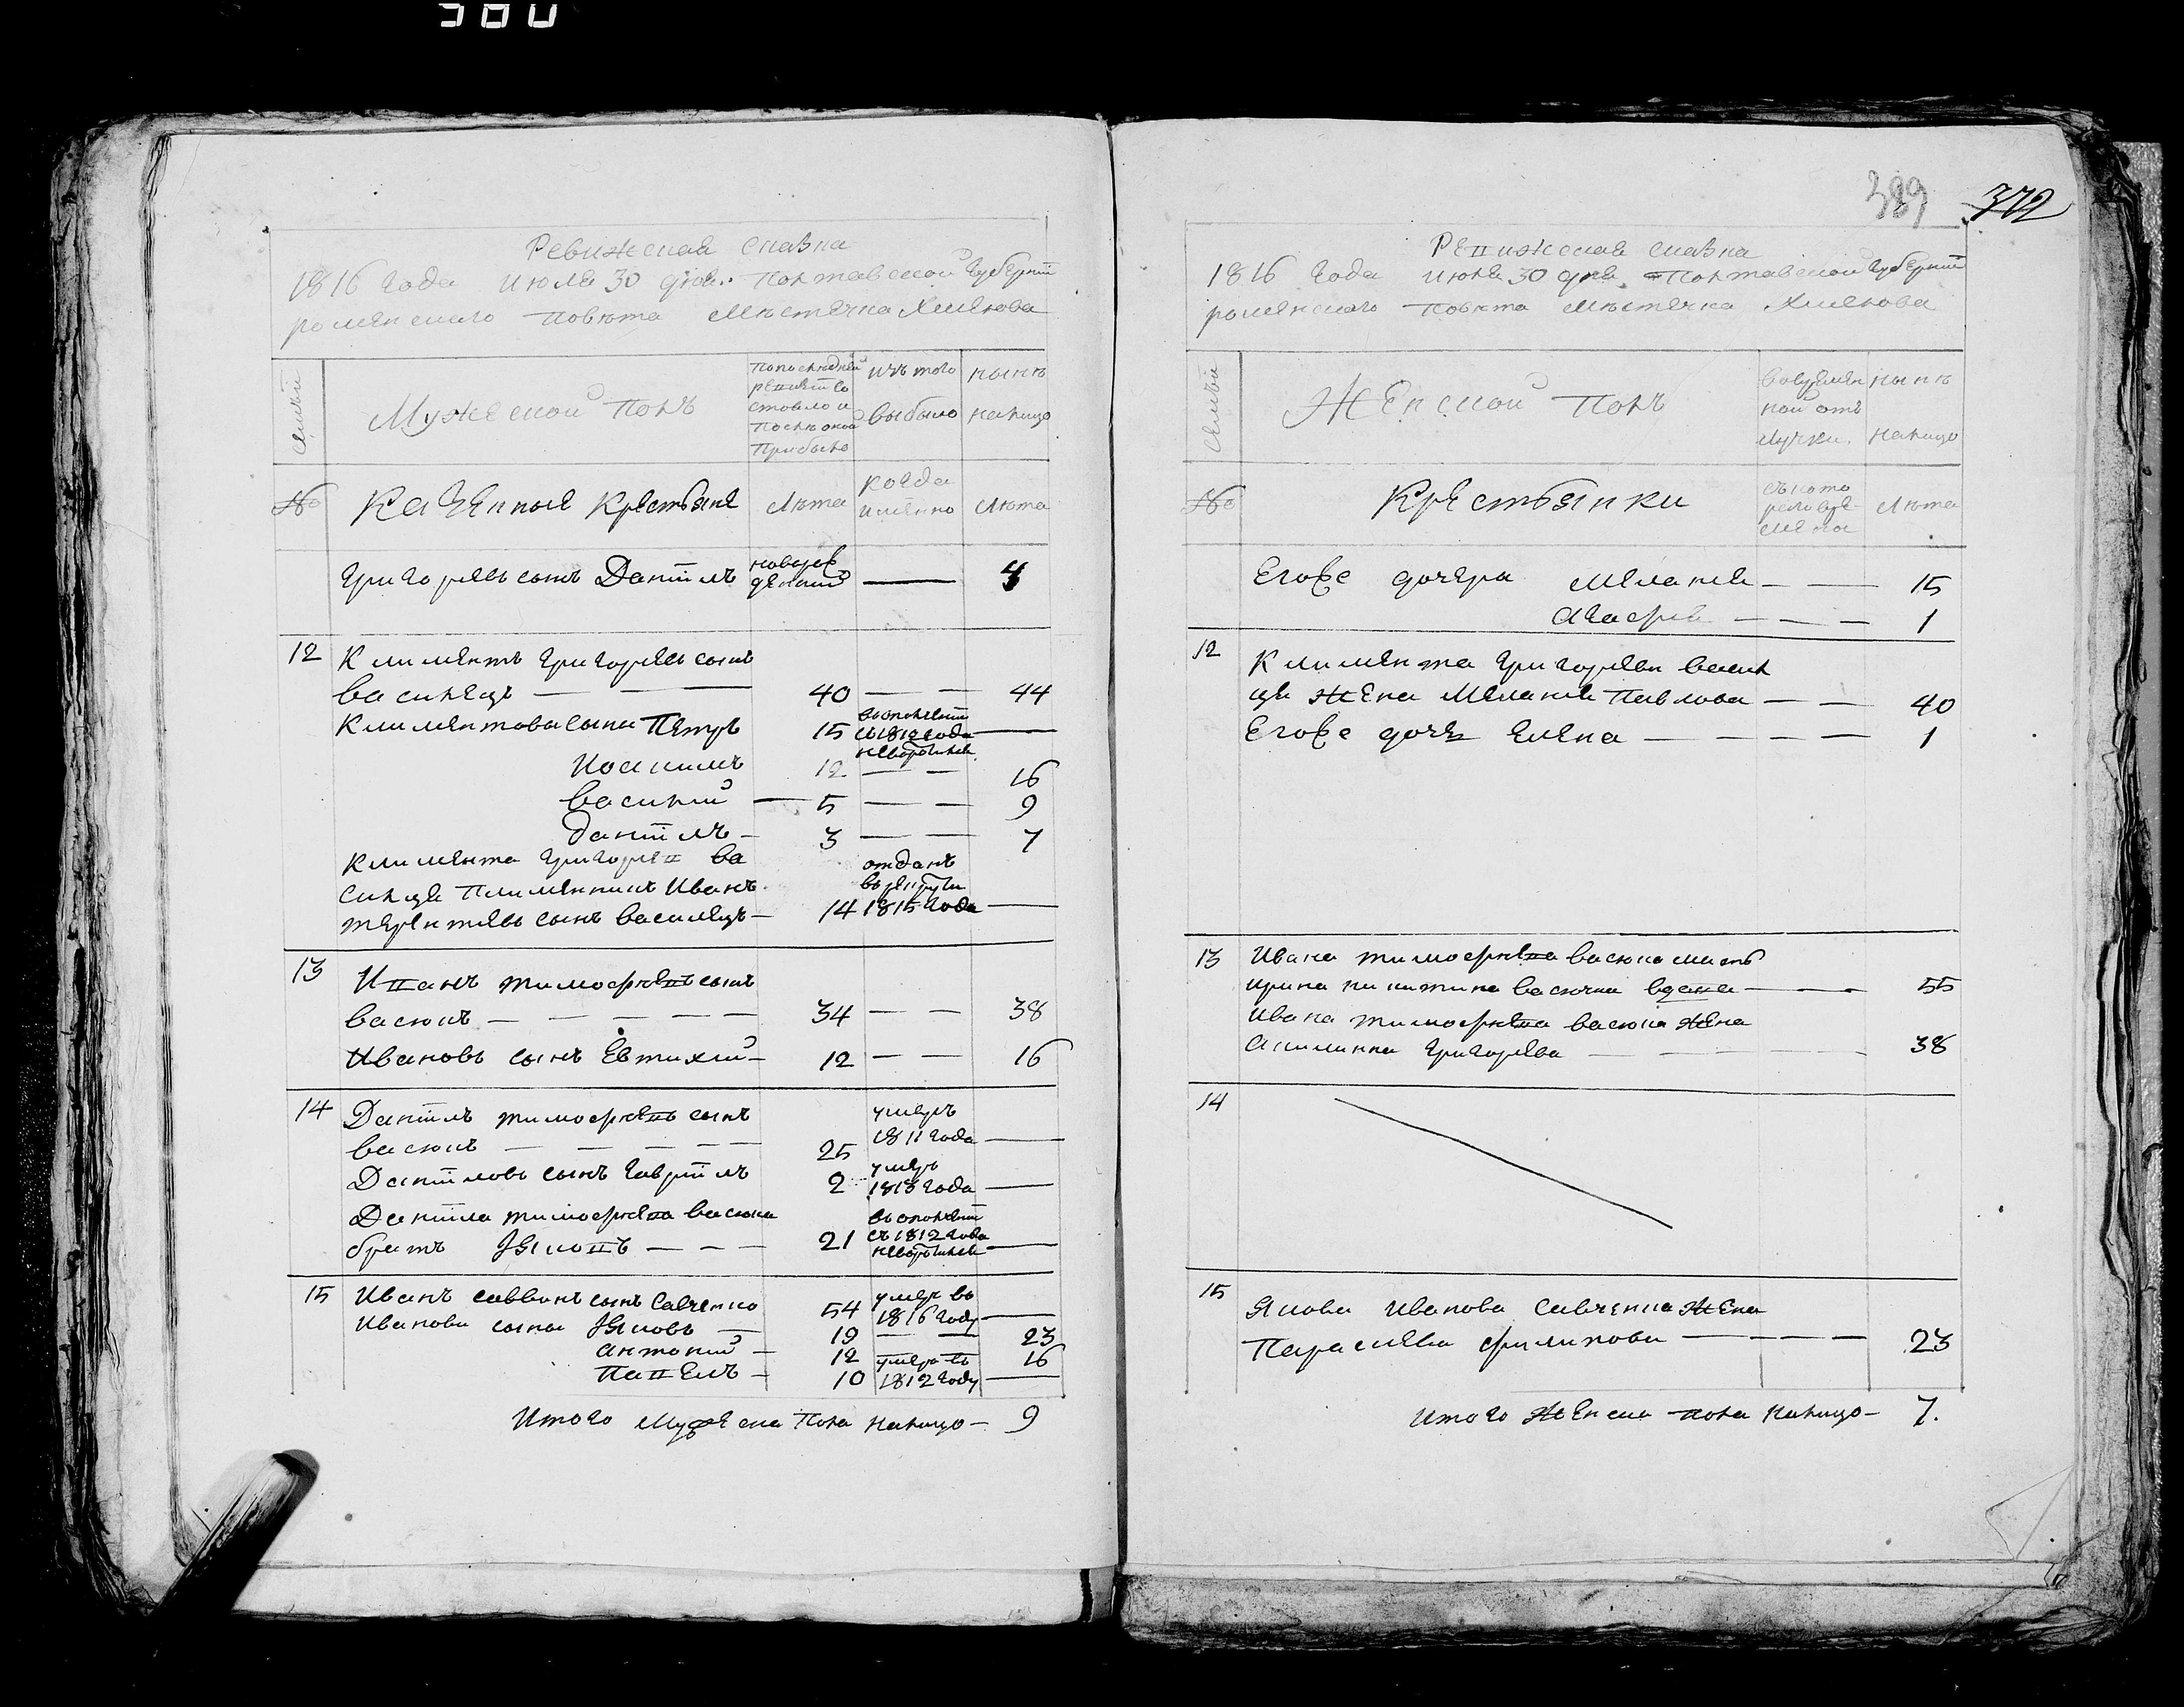 380
Ревижская сказка
1816 года июля 30 дня. Полтавской губернїи
роменского повета местечка Хмелова
семьи
Мужеской полъ
по последней
ревизїи со
стояло и
после оной
прибыло
изъ того
выбыло
ныне
налицо
№
Казенные крестьяне
лета
когда
именно
лета
Григорьевъ сынъ Данїилъ новорож
денный — 4
12 Климентъ Григорьевъ сынъ
Василецъ — — 40 — — 44
Климентовы сыны Петръ 15 въ ополченїи
съ 1812 года
невозвратился —
Иоакимъ 12 — — 16
Василий — 5 — — 9
Данїилъ — 3 — — 7
Климента Григорьева Ва
сильца племянникъ Иванъ
Терентьевъ сынъ Василецъ — 14 отданъ
въ рекруты
1815 года —
13 Иванъ Тимофеевъ сынъ
Васюкъ — — — — — 34 — — 38
Ивановъ сынъ Евтихий — 12 — — 16
14 Данїилъ Тимофеевъ сынъ
Васюкъ — — — — — 25 умеръ
1811 года —
Данїиловъ сынъ Гаврїилъ 2 умеръ
1813 года —
Данїила Тимофеева Васюка
братъ Яковъ — — — 21 въ ополченїи
съ 1812 года
невозвратился —
15 Иванъ Саввинъ сынъ Савченко 54 умеръ въ
1816 году —
Ивановы сыны Яковъ — 19 — — 23
Антоний — 12 — — 16
Павелъ — 10 умеръ въ
1812 году —
Итого мужеска пола налицо — 9
389 372
Ревижская сказка
1816 года июля 30 дня. Полтавской губернїи
роменского повета местечка Хмелова
семьи
Женской полъ
во времен
ной отъ
лучки.
ныне
налицо
№
Крестьянки
съ кото
рого вре-
мени
лета
Егоже дочери Мелания — — 15
Агафия — — — 1
12 Климента Григорьева Василь
ця жена Мелания Павлова — — 40
Егоже дочь Елена — — — — 1
13 Ивана Тимофеева Васюка мать
Ирина Никитина Васючка вдова — — — 55
Ивана Тимофеева Васюка жена
Акилина Григорьева — — — 38
14
15 Якова Иванова Савченка жена
Параскева Филипова — — — — 23
Итого женска пола налицо — 7.